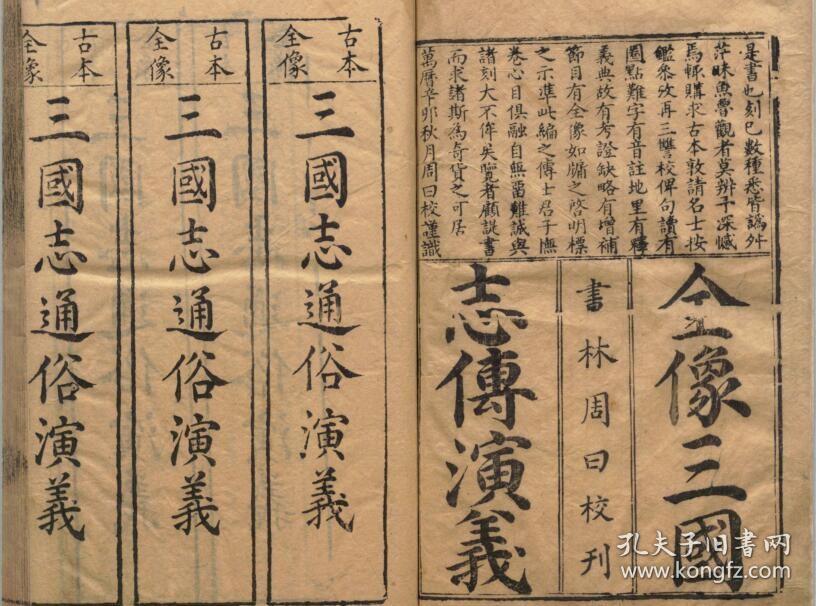 是書也刻已數種悉皆譌舛
茫昧魚魯觀者莫辨予深憾
焉輒購求古本敦請名士按
鑑叅攷再三讐校俾句讀有
圈點難字有音註地里有釋
義典故有考證缺略有增補
節目有全像如牖之啓明標
之示準此編之傳士君子撫
卷心目俱融自無畱難誠與
諸刻大不侔矣覽者顧諟書
而求諸斯為奇貨之可居
萬曆辛卯秋月周曰校謹識
全像三國
書林周曰校刊
志傳演義
古本
全像
三國志通俗演義
古本
全像
三國志通俗演義
古本
全像
三國志通俗演義
孔夫子旧書网
www.kongfz.com